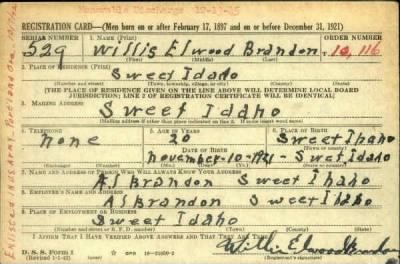 REGISTRATION CARD—(Men born on or after February 17, 1897 and on or before December 31, 1921)
SERIAL NUMBER 1. NAME (Print) ORDER NUMBER
529 Willis Elwood Brandon 10,116
(First) (Middle) (Last)
2. PLACE OF RESIDENCE (Print)
Sweet Idaho
(Number and street) (Town, township, village, or city) (County) (State)
[THE PLACE OF RESIDENCE GIVEN ON THE LINE ABOVE WILL DETERMINE LOCAL BOARD
JURISDICTION; LINE 2 OF REGISTRATION CERTIFICATE WILL BE IDENTICAL]
3. MAILING ADDRESS
Sweet Idaho
[Mailing address if other than place indicated on line 2. If same insert word same]
4. TELEPHONE 5. AGE IN YEARS 6. PLACE OF BIRTH
None 20 Sweet Ihaho
DATE OF BIRTH
November-10-1921- Swet Idaho
(Exchange) (Number) (Mo.) (Day) (Yr.)
7. NAME AND ADDRESS OF PERSON WHO WILL ALWAYS KNOW YOUR ADDRESS
Al Brandon Sweet Ihaho
8. EMPLOYER'S NAME AND ADDRESS
Al Brandon Sweet Idaho
9. PLACE OF EMPLOYMENT OR BUSINESS
Sweet Idaho
(Number and street or R. F. D. number) (Town) (County) (State)
I AFFIRM THAT I HAVE VERIFIED ABOVE ANSWERS AND THAT THEY ARE TRUE.
D. S. S. Form 1
(Revised 1-1-42)
Willis Elwood Brandon